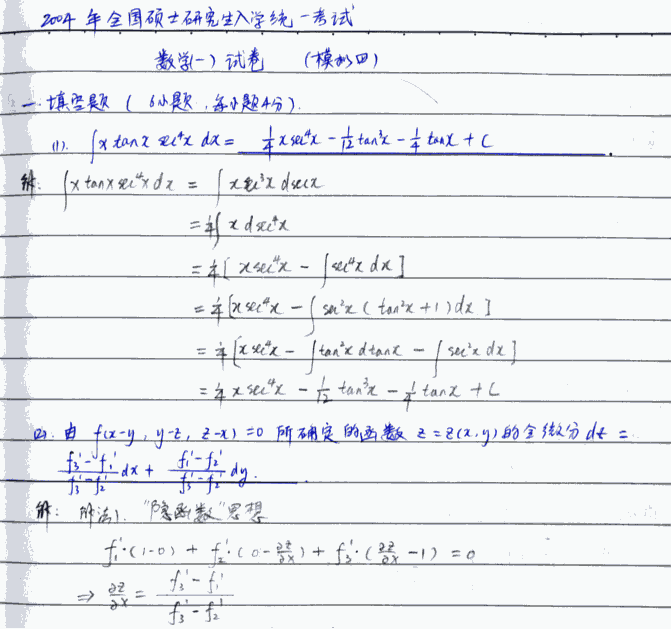 2004年全国硕士研究生入学统一考试
数学(一)试卷 (模拟四)
一. 填空题 ( 6小题, 每小题4分).
(1). ∫x tanx sec⁴x dx = 1/4 x sec⁴x - 1/12 tan³x - 1/4 tanx + C .
解: ∫x tanx sec⁴x dx = ∫ x sec³x dsecx
= 1/4 ∫ x dsec⁴x
= 1/4 [ x sec⁴x - ∫sec⁴x dx ]
= 1/4 [x sec⁴x - ∫ sec²x ( tan²x + 1 ) dx ]
= 1/4 [x sec⁴x - ∫tan²x dtanx - ∫ sec²x dx]
= 1/4 x sec⁴x - 1/12 tan³x - 1/4 tanx + C
(2). 由 f(x-y, y-z, z-x) = 0 所确定的函数 z = z(x,y) 的全微分 dz =
(f₃' - f₁')/(f₃' - f₂') dx + (f₁' - f₂')/(f₃' - f₂') dy .
解: 解法1. "隐函数"思想
f₁'·(1-0) + f₂'·(0 - ∂z/∂x) + f₃'·(∂z/∂x - 1) = 0
⇒ ∂z/∂x = (f₃' - f₁')/(f₃' - f₂')